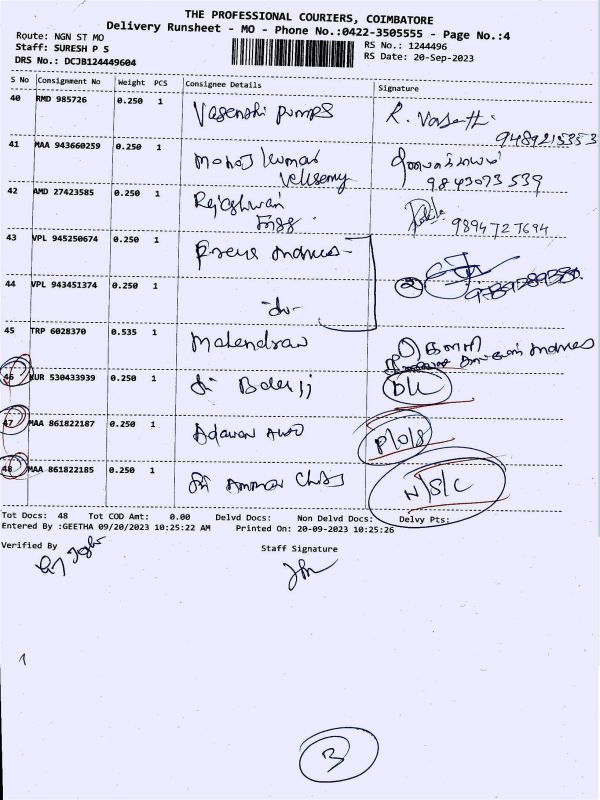 THE PROFESSIONAL COURIERS, COIMBATORE
Delivery Runsheet - MO - Phone No.:0422-3505555 - Page No.:4
Route: NGN ST MO
RS No.: 1244496
Staff: SURESH P S
RS Date: 20-Sep-2023
DRS No.: DCJB124449604
S No Consignment No Weight PCS Consignee Details Signature
40 RMD 985726 0.250 1 Vasenshi pumps R. Vasanthi
9489215353
41 MAA 943660259 0.250 1 Manoj kumar
Velusamy 9843073539
42 AMD 27423585 0.250 1 Rajeshwari 9894727694
43 VPL 945250674 0.250 1
44 VPL 943451374 0.250 1 -do- 2
45 TRP 6028370 0.535 1 Mahendran
46 KUR 530433939 0.250 1 Sri Balaji D/L
47 MAA 861822187 0.250 1 Adavan Auto P/O/S
48 MAA 861822185 0.250 1 Sri Amman N/S/C
Tot Docs: 48 Tot COD Amt: 0.00 Delvd Docs: Non Delvd Docs: Delvy Pts:
Entered By :GEETHA 09/20/2023 10:25:22 AM Printed On: 20-09-2023 10:25:26
Verified By Staff Signature
1
3